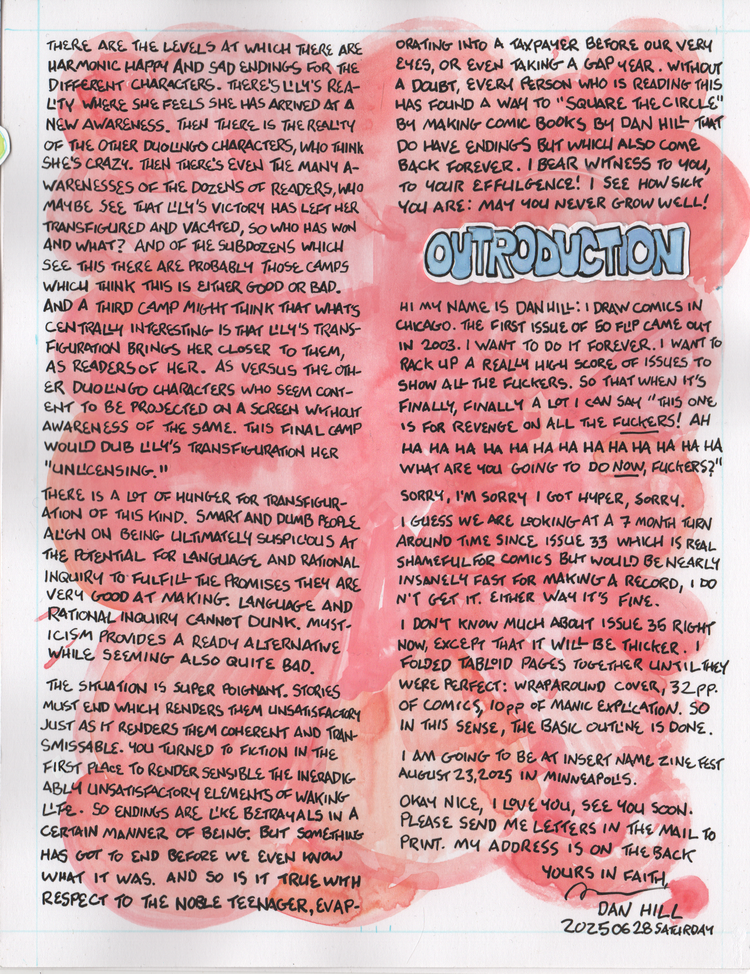 THERE ARE THE LEVELS AT WHICH THERE ARE
HARMONIC HAPPY AND SAD ENDINGS FOR THE
DIFFERENT CHARACTERS. THERE'S LILY'S REA-
LITY WHERE SHE FEELS SHE HAS ARRIVED AT A
NEW AWARENESS. THEN THERE IS THE REALITY
OF THE OTHER DUOLINGO CHARACTERS, WHO THINK
SHE'S CRAZY. THEN THERE'S EVEN THE MANY A-
WARENESSES OF THE DOZENS OF READERS, WHO
MAYBE SEE THAT LILY'S VICTORY HAS LEFT HER
TRANSFIGURED AND VACATED, SO WHO HAS WON
AND WHAT? AND OF THE SUBDOZENS WHICH
SEE THIS THERE ARE PROBABLY THOSE CAMPS
WHICH THINK THIS IS EITHER GOOD OR BAD.
AND A THIRD CAMP MIGHT THINK THAT WHAT'S
CENTRALLY INTERESTING IS THAT LILY'S TRANS-
FIGURATION BRINGS HER CLOSER TO THEM,
AS READERS OF HER. AS VERSUS THE OTH-
ER DUOLINGO CHARACTERS WHO SEEM CONT-
ENT TO BE PROJECTED ON A SCREEN WITHOUT
AWARENESS OF THE SAME. THIS FINAL CAMP
WOULD DUB LILY'S TRANSFIGURATION HER
"UNLICENSING."
THERE IS A LOT OF HUNGER FOR TRANSFIGUR-
ATION OF THIS KIND. SMART AND DUMB PEOPLE
ALIGN ON BEING ULTIMATELY SUSPICIOUS AT
THE POTENTIAL FOR LANGUAGE AND RATIONAL
INQUIRY TO FULFILL THE PROMISES THEY ARE
VERY GOOD AT MAKING. LANGUAGE AND
RATIONAL INQUIRY CANNOT DUNK. MYST-
ICISM PROVIDES A READY ALTERNATIVE
WHILE SEEMING ALSO QUITE BAD.
THE SITUATION IS SUPER POIGNANT. STORIES
MUST END WHICH RENDERS THEM UNSATISFACTORY
JUST AS IT RENDERS THEM COHERENT AND TRAN-
SMISSABLE. YOU TURNED TO FICTION IN THE
FIRST PLACE TO RENDER SENSIBLE THE INERADIG
ABLY UNSATISFACTORY ELEMENTS OF WAKING
LIFE. SO ENDINGS ARE LIKE BETRAYALS IN A
CERTAIN MANNER OF BEING. BUT SOMETHING
HAS GOT TO END BEFORE WE EVEN KNOW
WHAT IT WAS. AND SO IS IT TRUE WITH
RESPECT TO THE NOBLE TEENAGER, EVAP-
ORATING INTO A TAXPAYER BEFORE OUR VERY
EYES, OR EVEN TAKING A GAP YEAR. WITHOUT
A DOUBT, EVERY PERSON WHO IS READING THIS
HAS FOUND A WAY TO "SQUARE THE CIRCLE"
BY MAKING COMIC BOOKS BY DAN HILL THAT
DO HAVE ENDINGS BUT WHICH ALSO COME
BACK FOREVER. I BEAR WITNESS TO YOU,
TO YOUR EFFULGENCE! I SEE HOW SICK
YOU ARE: MAY YOU NEVER GROW WELL!
OUTRODUCTION
HI MY NAME IS DAN HILL: I DRAW COMICS IN
CHICAGO. THE FIRST ISSUE OF 50 FLIP CAME OUT
IN 2003. I WANT TO DO IT FOREVER. I WANT TO
RACK UP A REALLY HIGH SCORE OF ISSUES TO
SHOW ALL THE FUCKERS. SO THAT WHEN IT'S
FINALLY, FINALLY A LOT I CAN SAY "THIS ONE
IS FOR REVENGE ON ALL THE FUCKERS! AH
HA HA HA HA HA HA HA HA HA HA HA HA HA
WHAT ARE YOU GOING TO DO NOW, FUCKERS?"
SORRY, I'M SORRY I GOT HYPER, SORRY.
I GUESS WE ARE LOOKING AT A 7 MONTH TURN
AROUND TIME SINCE ISSUE 33 WHICH IS REAL
SHAMEFUL FOR COMICS BUT WOULD BE NEARLY
INSANELY FAST FOR MAKING A RECORD, I DO
N'T GET IT. EITHER WAY IT'S FINE.
I DON'T KNOW MUCH ABOUT ISSUE 35 RIGHT
NOW, EXCEPT THAT IT WILL BE THICKER. I
FOLDED TABLOID PAGES TOGETHER UNTIL THEY
WERE PERFECT: WRAPAROUND COVER, 32PP.
OF COMICS, 10PP OF MANIC EXPLICATION. SO
IN THIS SENSE, THE BASIC OUTLINE IS DONE.
I AM GOING TO BE AT INSERT NAME ZINE FEST
AUGUST 23, 2025 IN MINNEAPOLIS.
OKAY NICE, I LOVE YOU, SEE YOU SOON.
PLEASE SEND ME LETTERS IN THE MAIL TO
PRINT. MY ADDRESS IS ON THE BACK
YOURS IN FAITH,
DAN HILL
20250628 SATURDAY